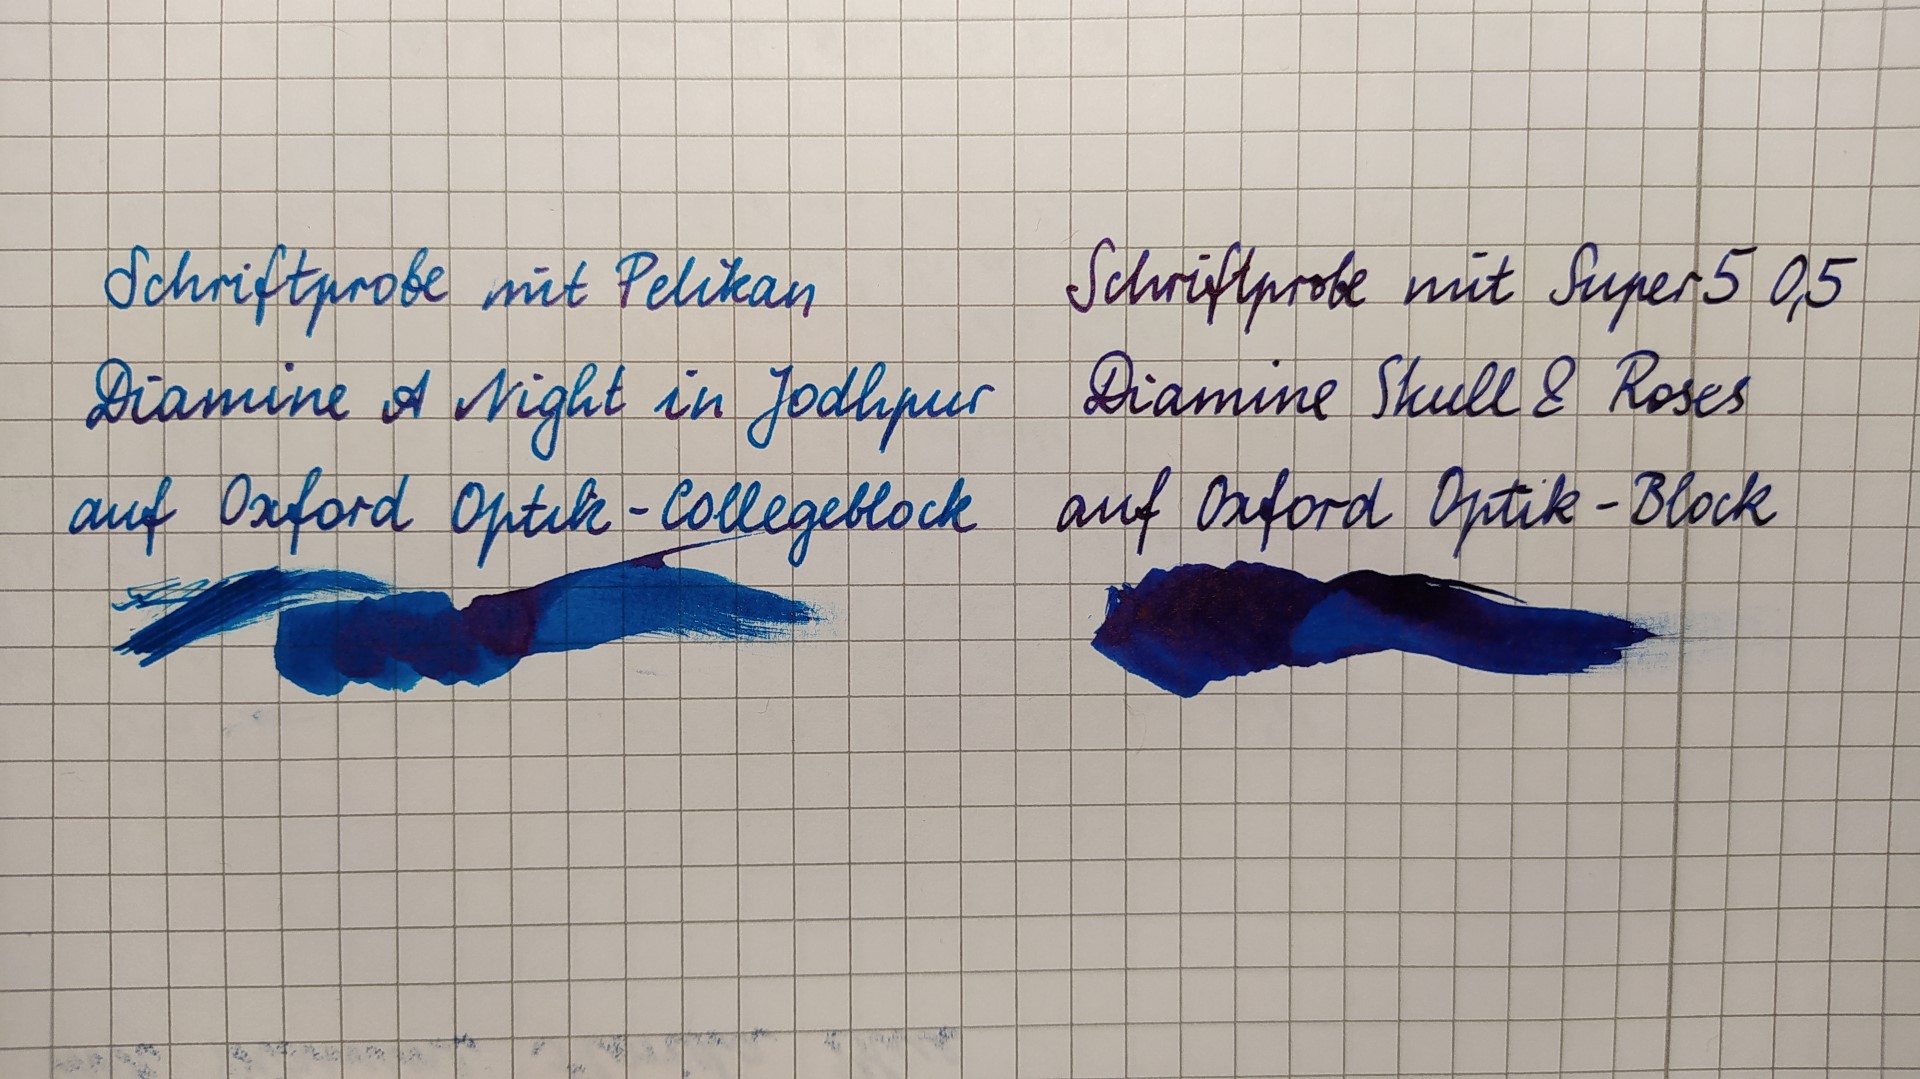 Schriftprobe mit Pelikan
Diamine A Night in Jodhpur
auf Oxford Optik-Collegeblock
Schriftprobe mit Super5 0,5
Diamine Skull & Roses
auf Oxford Optik-Block